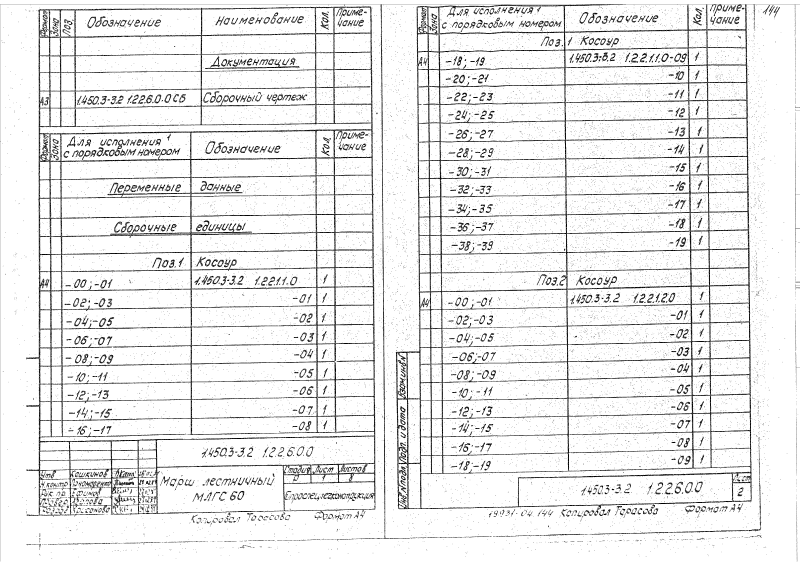 Формат Зона Поз. Обозначение Наименование Кол. Приме-чание
Документация
А3 1.450.3-3.2 1.2.2.6.0.0 СБ Сборочный чертеж
Формат Зона Для исполнения 1 с порядковым номером Обозначение Кол. Приме-чание
Переменные данные
Сборочные единицы
Поз.1 Косоур
А4 -00;-01 1.450.3-3.2 1.2.2.1.1.0 1
-02;-03 -01 1
-04;-05 -02 1
-06;-07 -03 1
-08;-09 -04 1
-10;-11 -05 1
-12;-13 -06 1
-14;-15 -07 1
-16;-17 -08 1
1.450.3-3.2 1.2.2.6.0.0
Утв Кошкинов
Н.контр Пономаренко
Марш лестничный
МЛГС 60
Стадия Лист Листов
Р 1 8
Копировал Тарасова Формат А4
144
Формат Зона Для исполнения 1 с порядковым номером Обозначение Кол. Приме-чание
Поз.1 Косоур
А4 -18;-19 1.450.3-3.2 1.2.2.1.1.0-09 1
-20;-21 -10 1
-22;-23 -11 1
-24;-25 -12 1
-26;-27 -13 1
-28;-29 -14 1
-30;-31 -15 1
-32;-33 -16 1
-34;-35 -17 1
-36;-37 -18 1
-38;-39 -19 1
Поз.2 Косоур
А4 -00;-01 1.450.3-3.2 1.2.2.1.2.0 1
-02;-03 -01 1
-04;-05 -02 1
-06;-07 -03 1
-08;-09 -04 1
-10;-11 -05 1
-12;-13 -06 1
-14;-15 -07 1
-16;-17 -08 1
-18;-19 -09 1
Инв.N подл. Подп. и дата Взам.инв.N
1.450.3-3.2 1.2.2.6.0.0
Лист
2
19931-04 144 Копировал Тарасова Формат А4